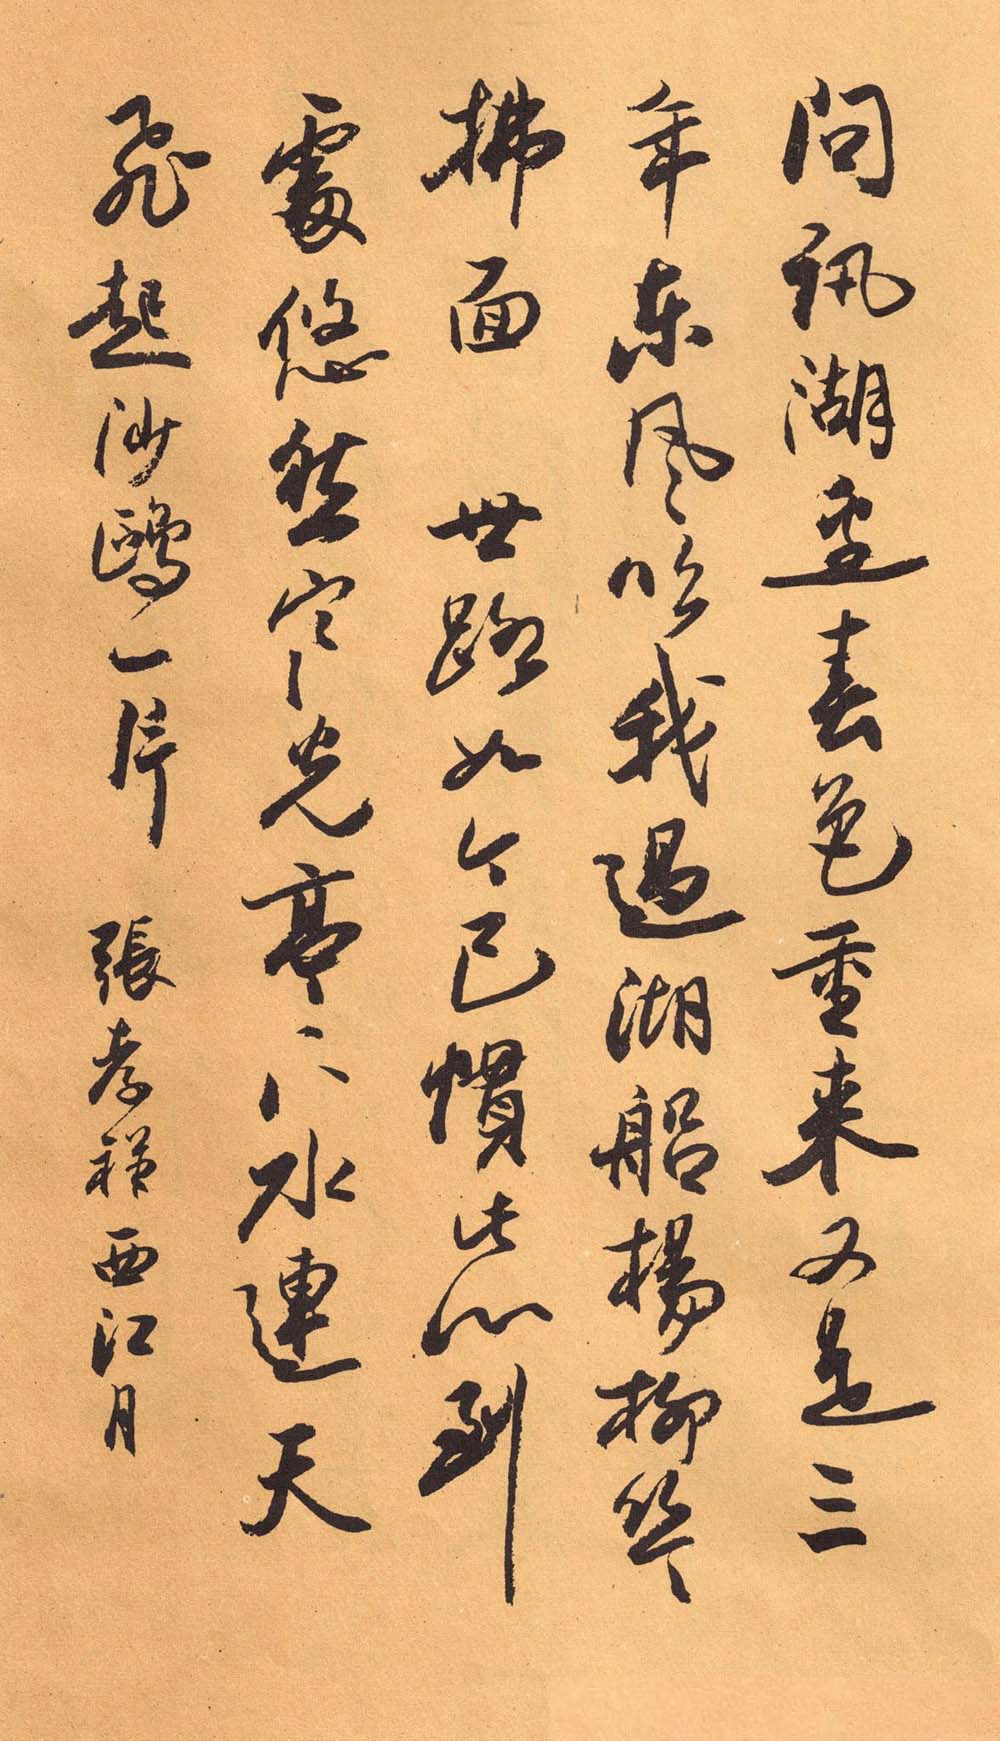 問訊湖邊春色重来又是三
年東風吹我過湖船楊柳丝々
拂面 世路如今已慣此心到
處悠然寒光亭下水連天
飛起沙鷗一片 張孝祥西江月